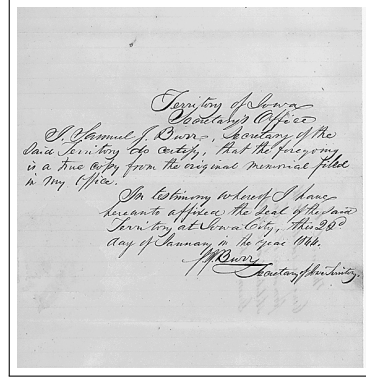 Territory of Iowa
Secretary's Office
I, Samuel J. Burr, Secretary of the
said Territory do certify, that the foregoing
is a true copy from the original memorial filed
in my Office.
In testimony whereof I have
hereunto affixed the seal of the said
Territory at Iowa City, this 23d
day of January in the year 1844.
S. J. Burr
Secretary of Iowa Territory.